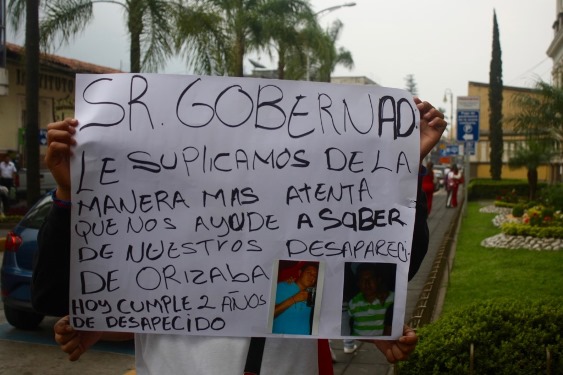 SR. GOBERNAD.
LE SUPLICAMOS DE LA
MANERA MAS ATENTA
QUE NOS AYUDE A SABER
DE NUESTROS DESAPARECI
DE ORIZABA
HOY CUMPLE 2 AÑOS
DE DESAPECIDO